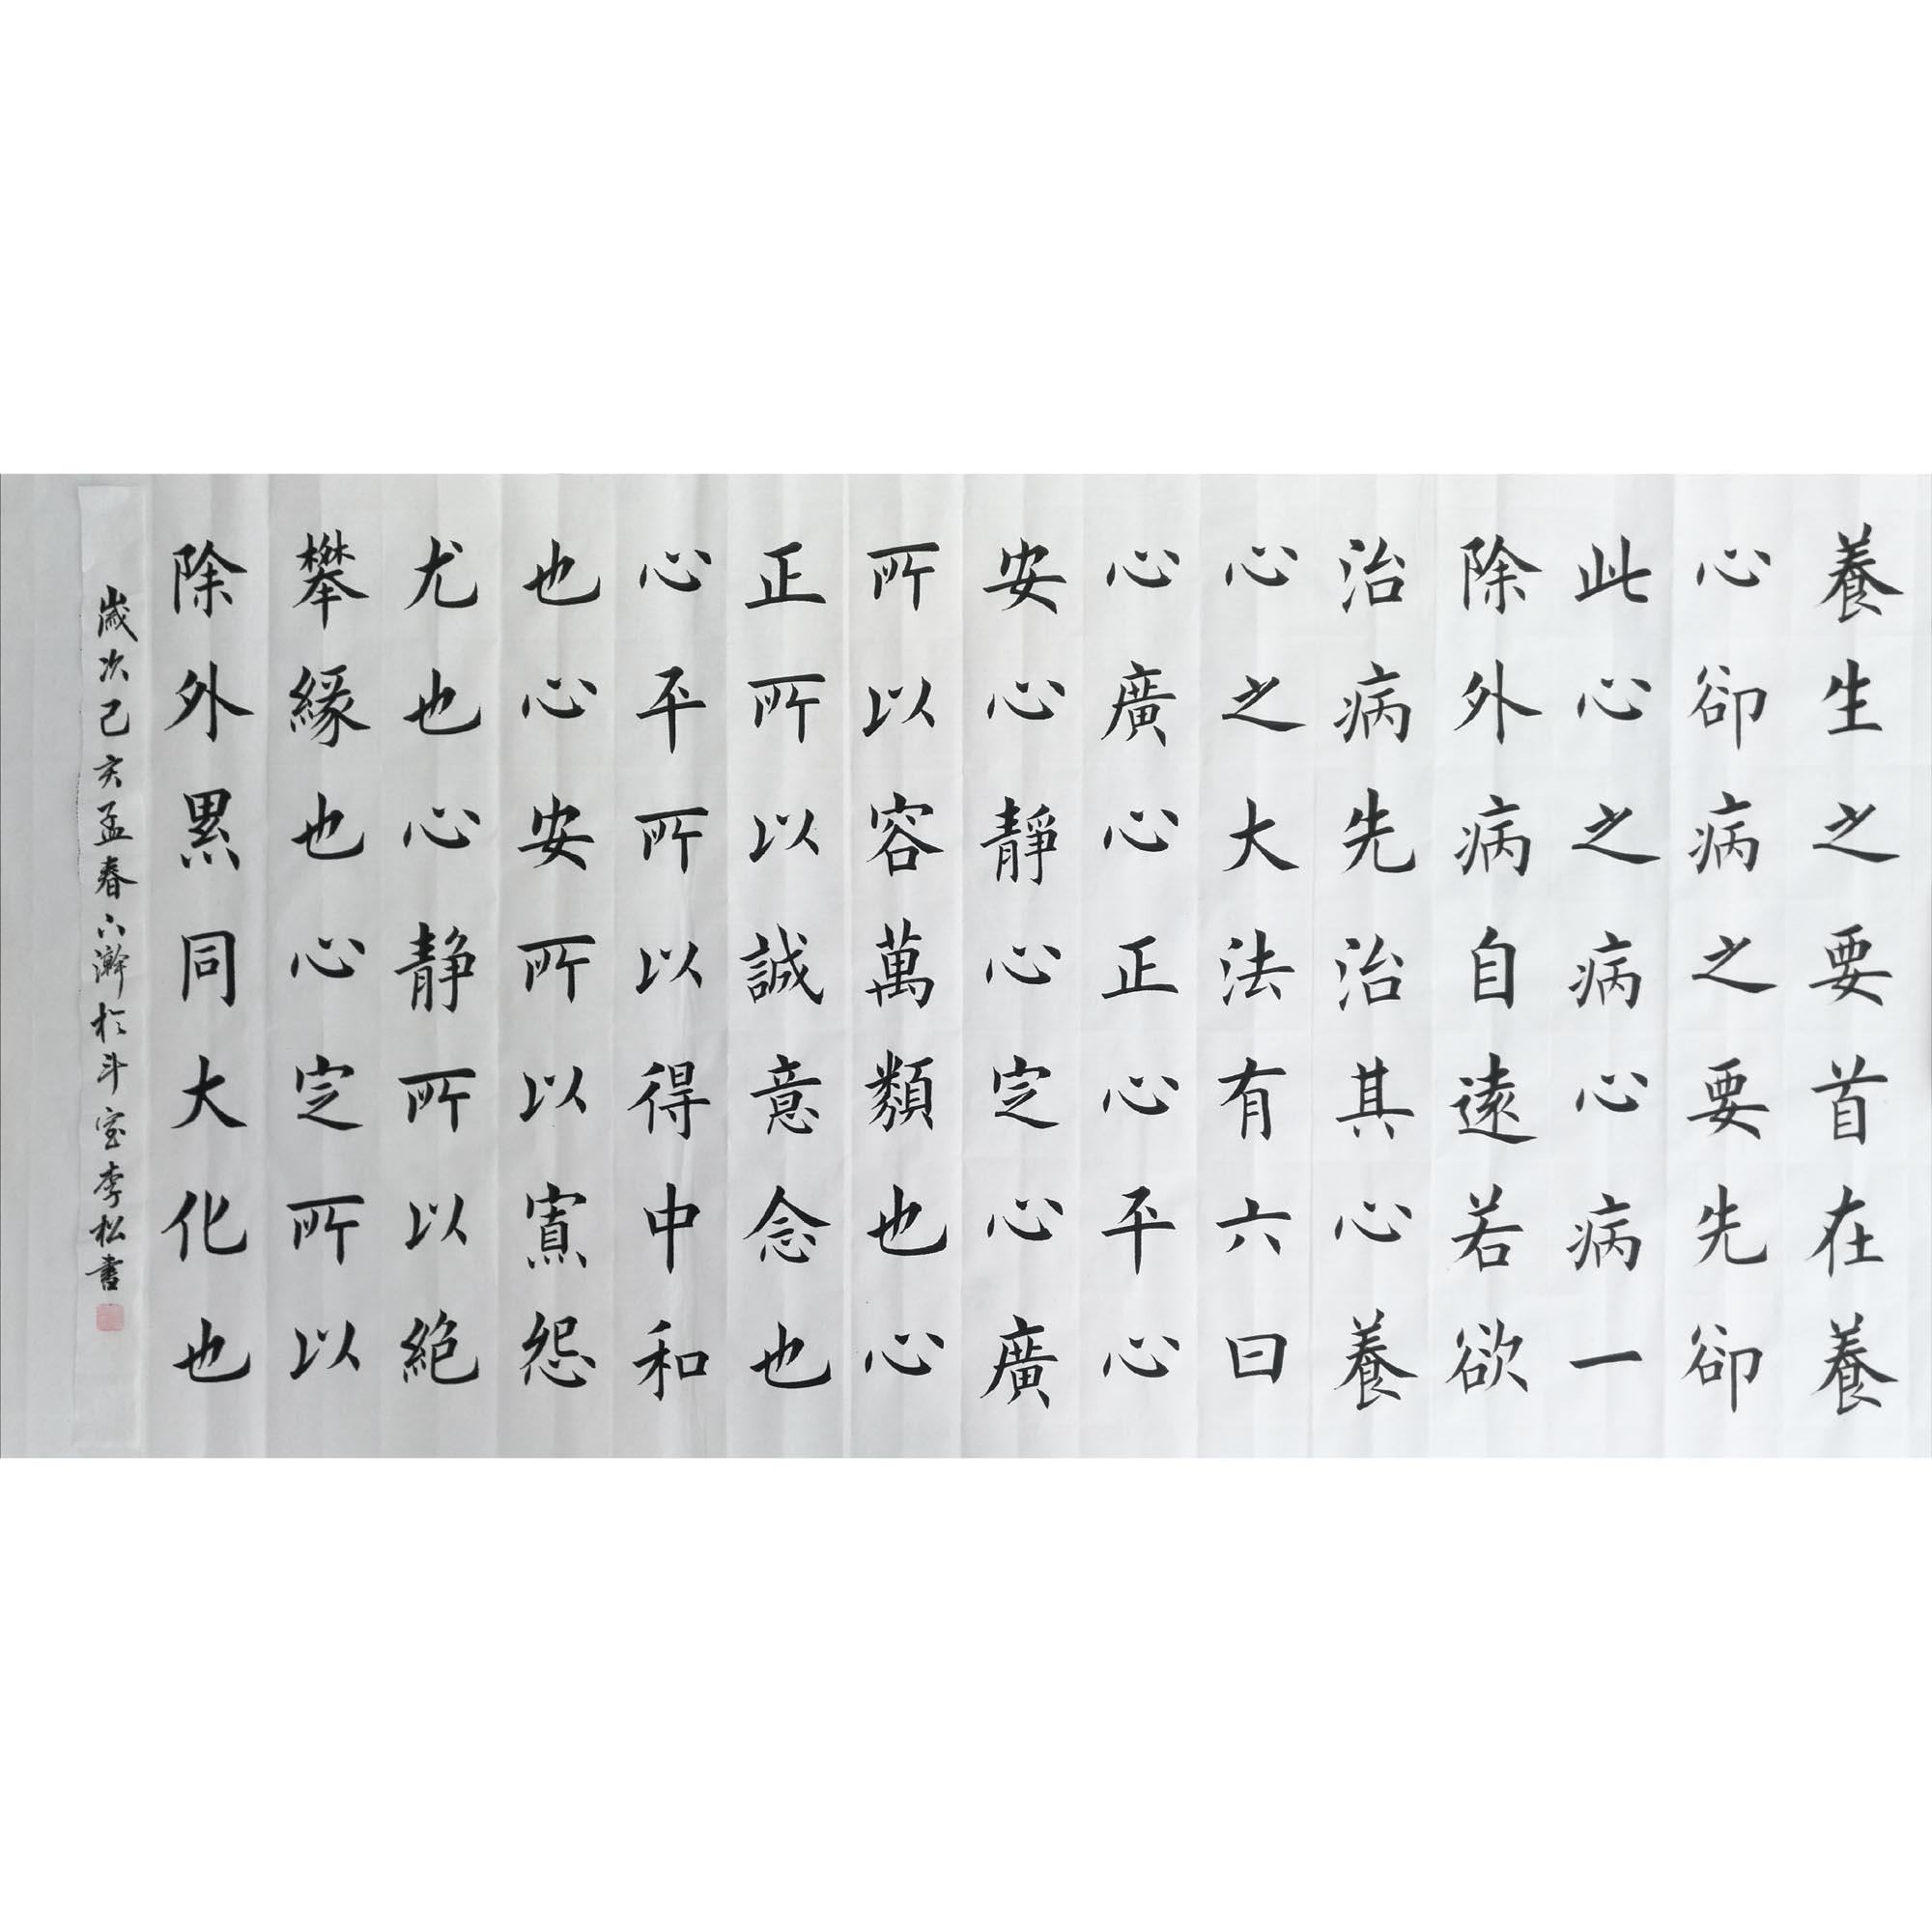 養生之要首在養
心卻病之要先卻
此心之病心病一
除外病自遠若欲
治病先治其心養
心之大法有六曰
心廣心正心平心
安心靜心定心廣
所以容萬類也心
正所以誠意念也
心平所以得中和
也心安所以寡怨
尤也心静所以絕
攀緣也心定所以
除外累同大化也
歲次己亥孟春六澣於斗室李松書